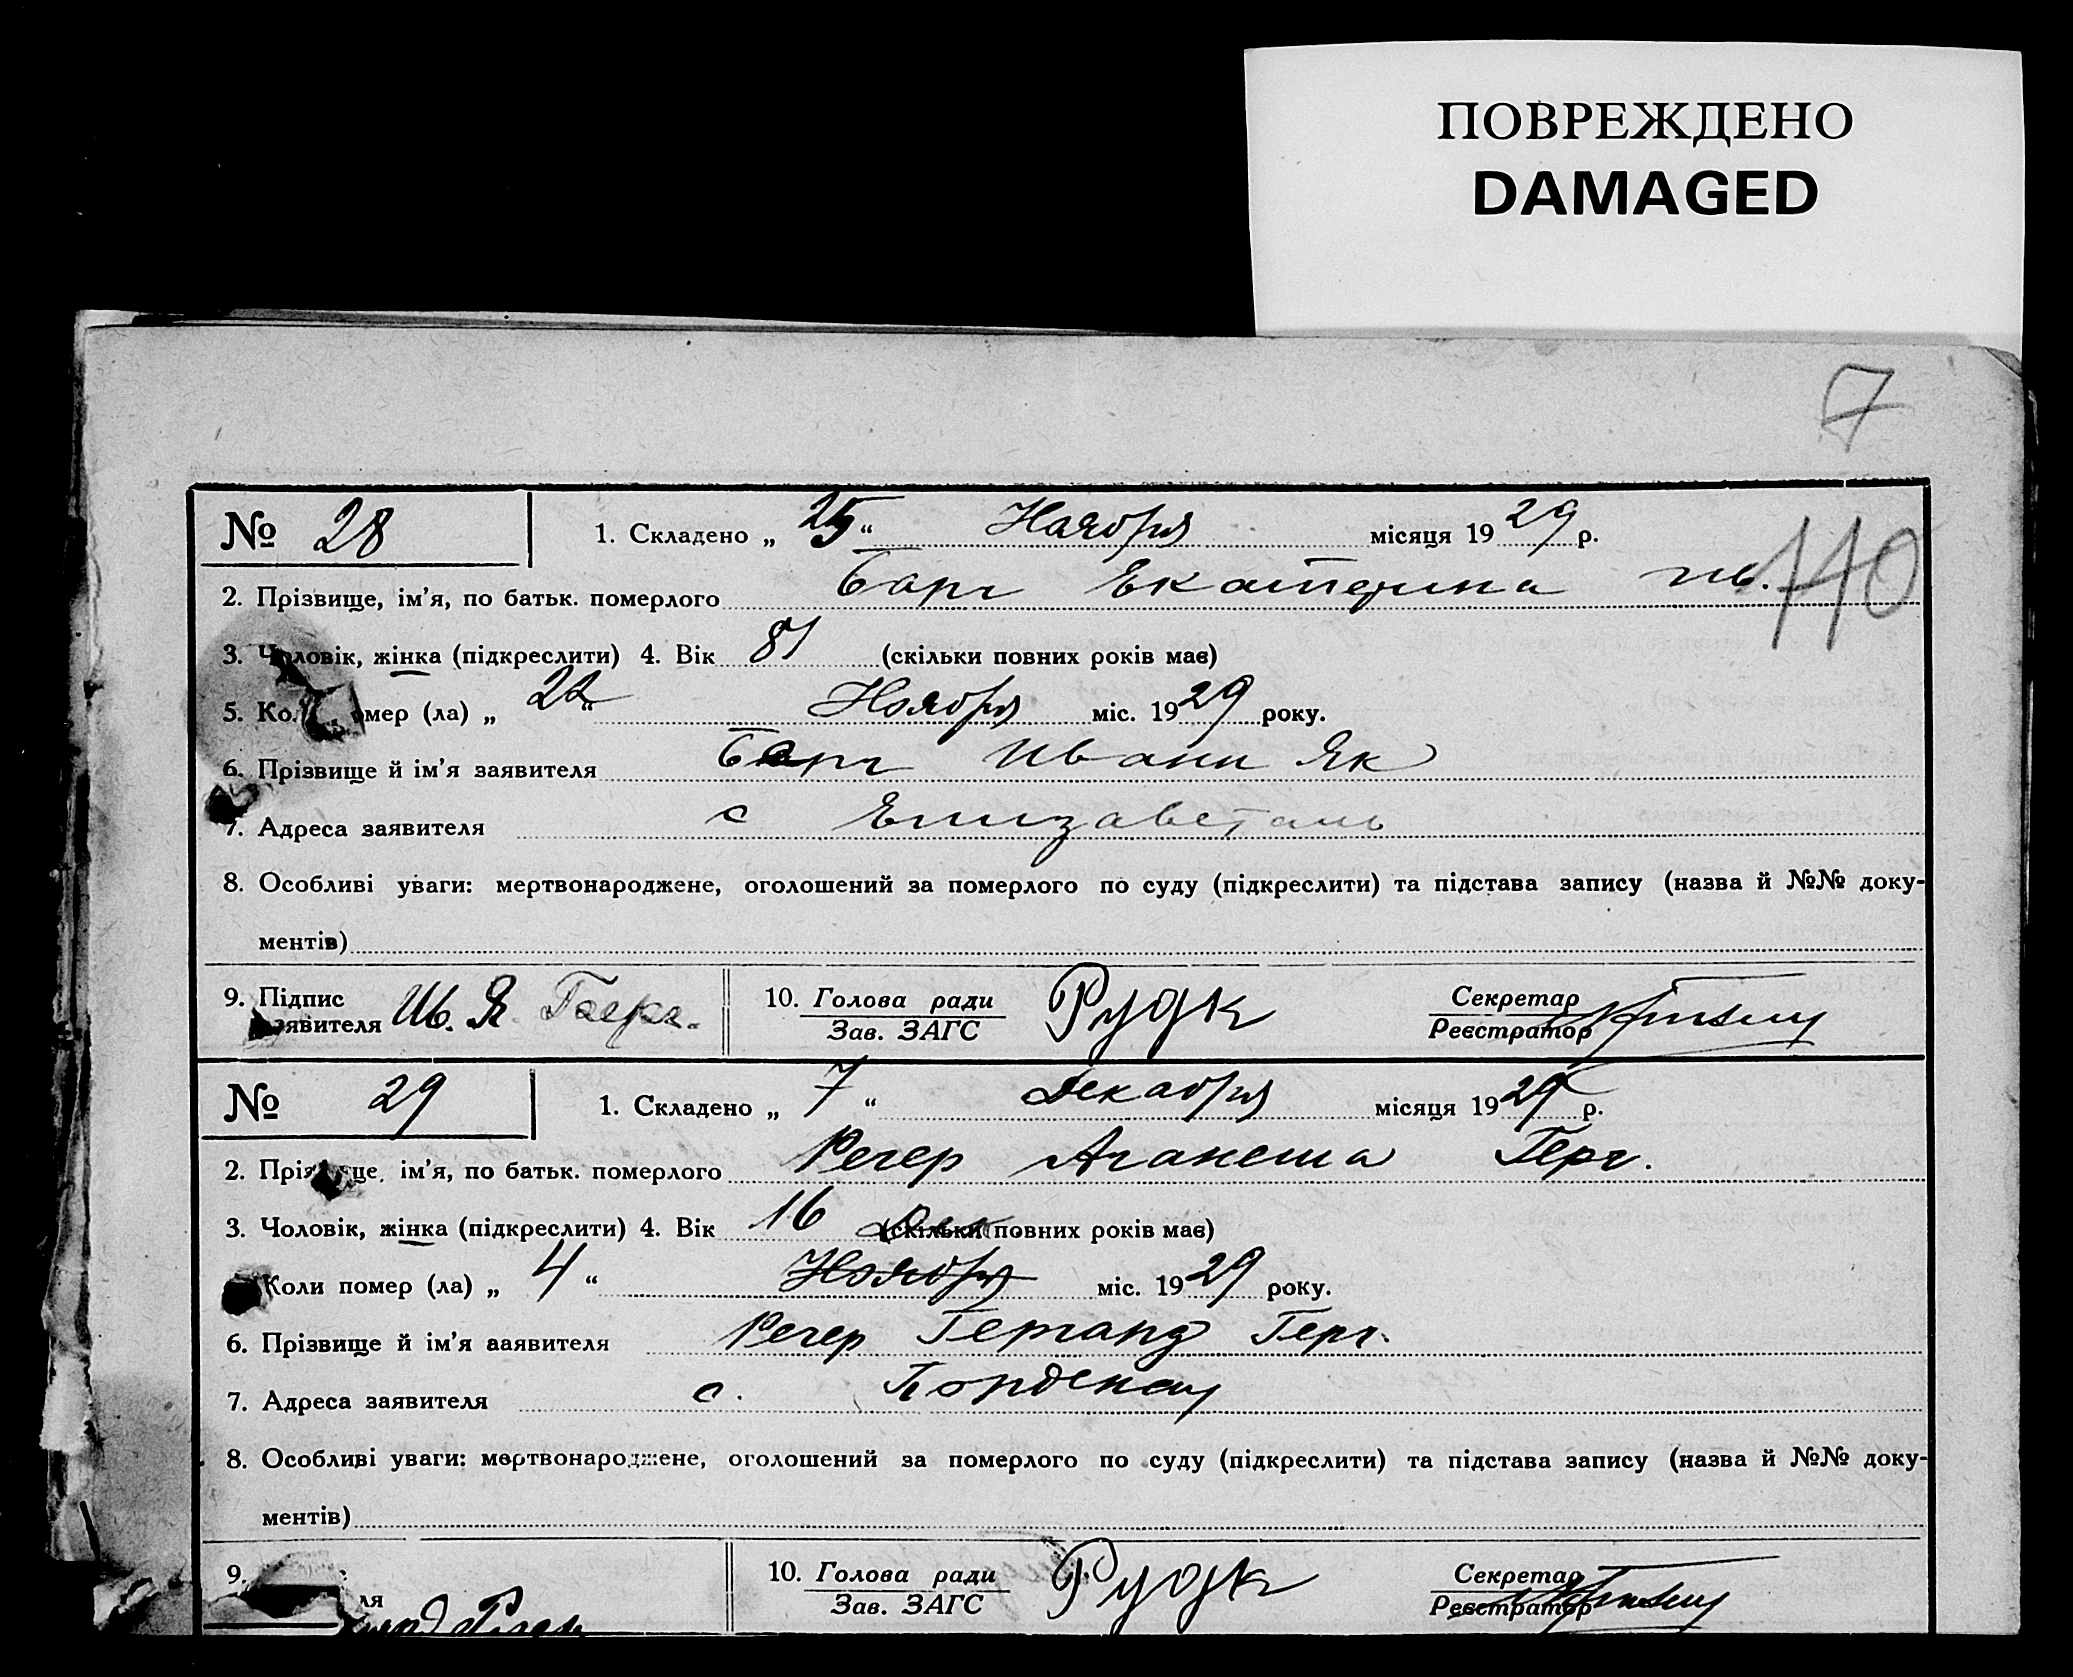 ПОВРЕЖДЕНО
DAMAGED
7
№ 28 1. Складено „ 25 “ Ноября місяця 1929 р.
110
2. Прізвище, ім’я, по батьк. померлого Барг Екатерина Ив.
3. Чоловік, жінка (підкреслити) 4. Вік 81 (скільки повних років має)
5. Ко мер (ла) „ 22 “ Ноября міс. 1929 року.
6. Прізвище й ім’я заявителя Барг Иван Як
7. Адреса заявителя с Елизаветаль
8. Особливі уваги: мертвонароджене, оголошений за померлого по суду (підкреслити) та підстава запису (назва й №№ доку-
ментів)
9. Підпис
аявителя Ив. Я. Барг.
10. Голова ради
Зав. ЗАГС
Секретар
Реєстратор
№ 29 1. Складено „ 7 “ Декабря місяця 1929 р.
2. Пріз ще, ім’я, по батьк. померлого Регер Аганеша Герг.
3. Чоловік, жінка (підкреслити) 4. Вік 16 (скільки повних років має)
Коли помер (ла) „ 4 “ Ноября міс. 1929 року.
6. Прізвище й ім’я заявителя Регер Герганд Герг.
7. Адреса заявителя с. Борденау
8. Особливі уваги: мертвонароджене, оголошений за померлого по суду (підкреслити) та підстава запису (назва й №№ доку-
ментів)
9.
ля
10. Голова ради
Зав. ЗАГС
Секретар
Реєстратор